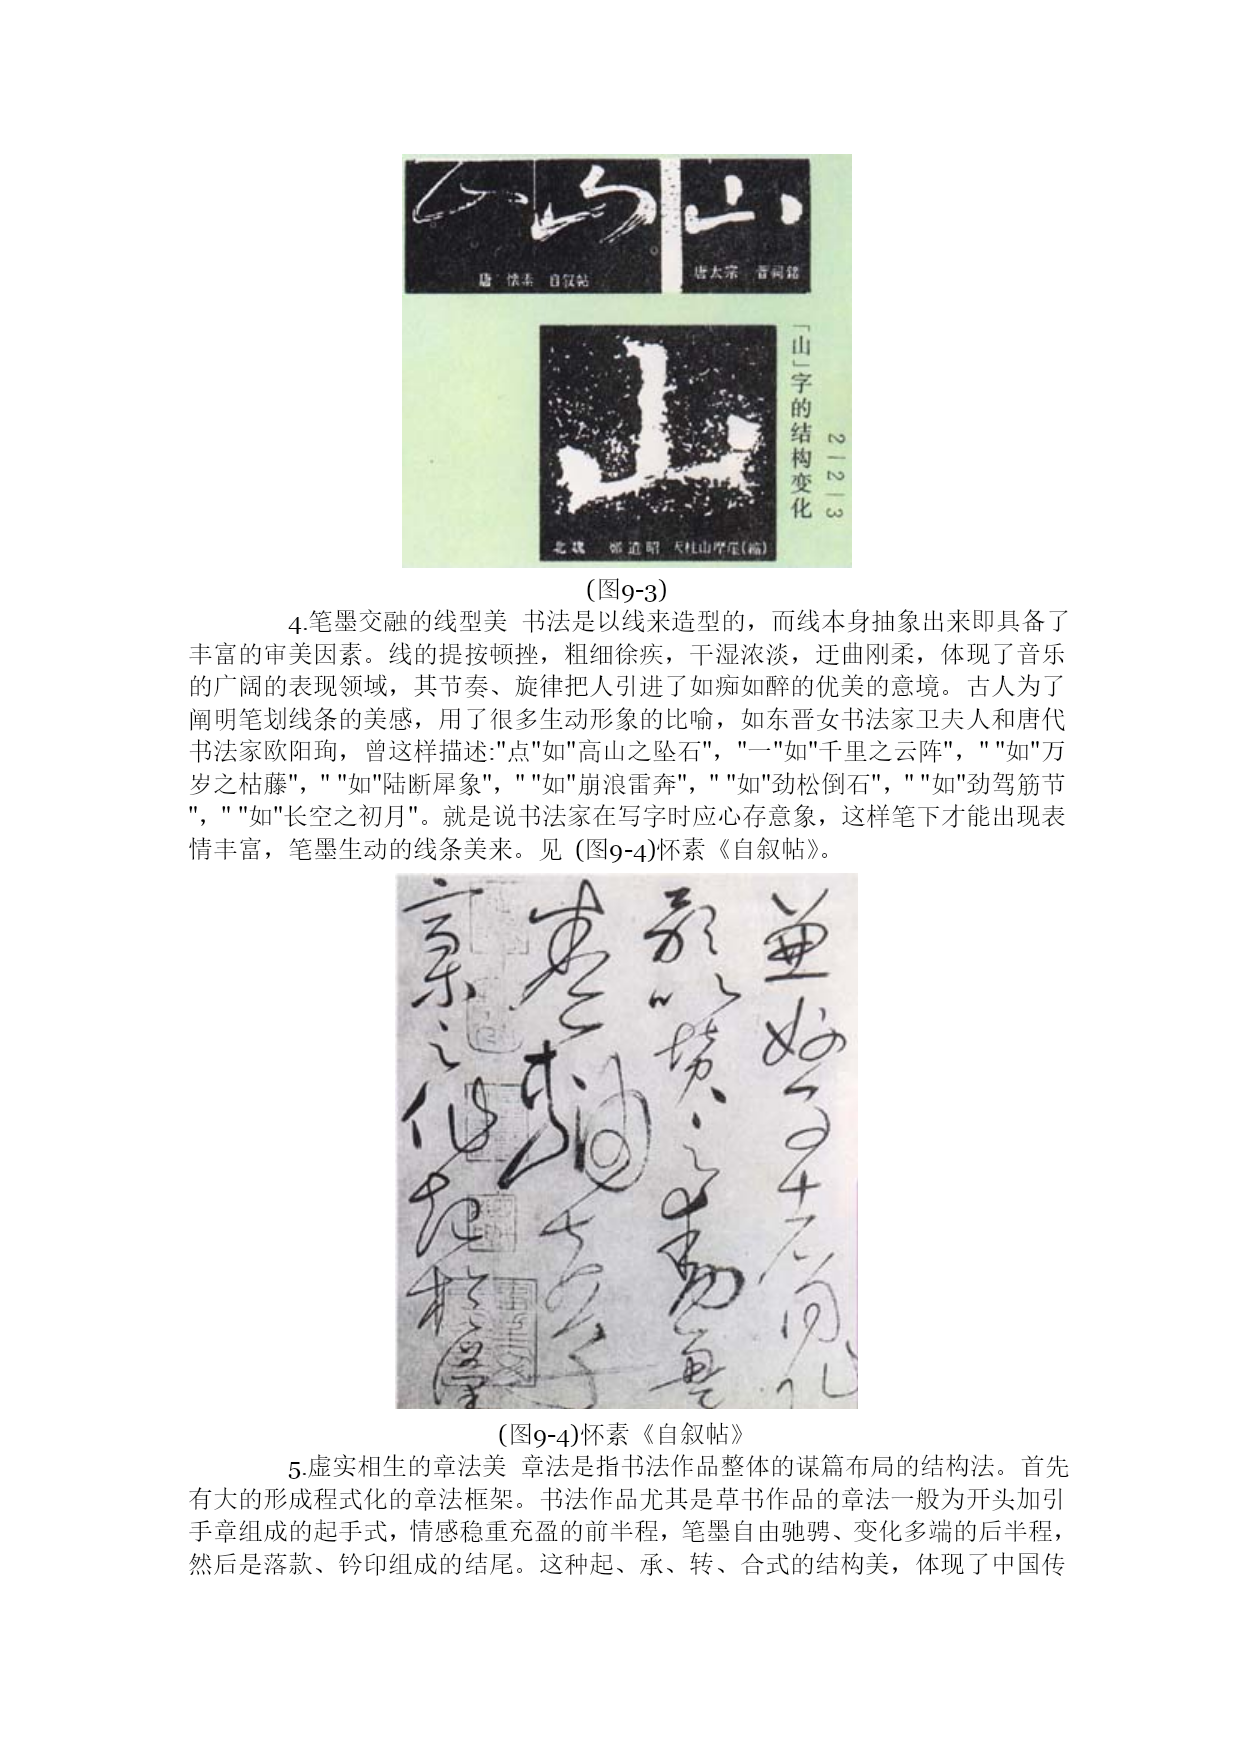 唐 怀素 自叙帖
唐太宗 晋祠铭
「山」字的结构变化
2—2—3
北魏 郑道昭 天柱山摩崖(缩)
(图9-3)
4.笔墨交融的线型美 书法是以线来造型的，而线本身抽象出来即具备了
丰富的审美因素。线的提按顿挫，粗细徐疾，干湿浓淡，迂曲刚柔，体现了音乐
的广阔的表现领域，其节奏、旋律把人引进了如痴如醉的优美的意境。古人为了
阐明笔划线条的美感，用了很多生动形象的比喻，如东晋女书法家卫夫人和唐代
书法家欧阳珣，曾这样描述:"点"如"高山之坠石"，"一"如"千里之云阵"，" "如"万
岁之枯藤"，" "如"陆断犀象"，" "如"崩浪雷奔"，" "如"劲松倒石"，" "如"劲驾筋节
"，" "如"长空之初月"。就是说书法家在写字时应心存意象，这样笔下才能出现表
情丰富，笔墨生动的线条美来。见 (图9-4)怀素《自叙帖》。
(图9-4)怀素《自叙帖》
5.虚实相生的章法美 章法是指书法作品整体的谋篇布局的结构法。首先
有大的形成程式化的章法框架。书法作品尤其是草书作品的章法一般为开头加引
手章组成的起手式，情感稳重充盈的前半程，笔墨自由驰骋、变化多端的后半程，
然后是落款、钤印组成的结尾。这种起、承、转、合式的结构美，体现了中国传